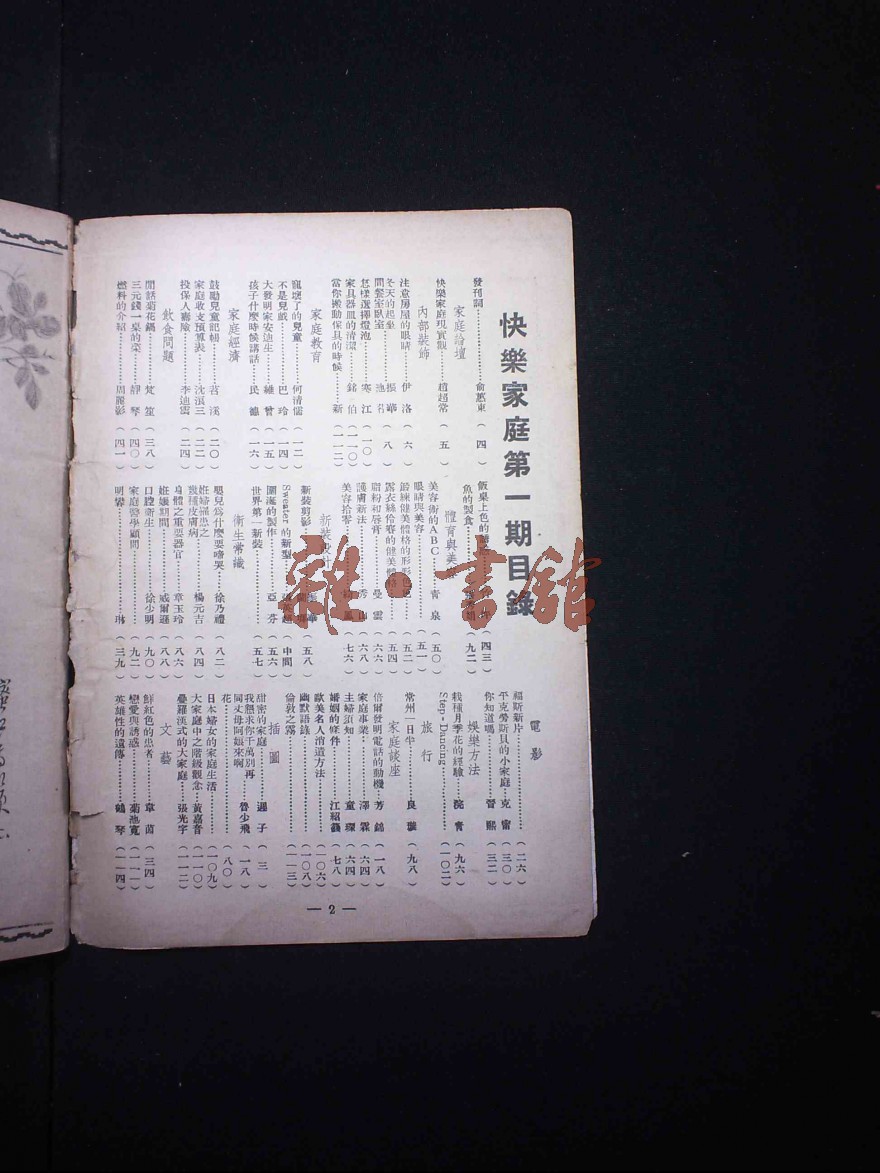 快樂家庭第一期目錄
發刊詞………俞蕙東(四)
家庭論壇
快樂家庭現實觀………趙超常(五)
內部裝飾
注意房屋的眼睛………伊洛(六)
冬天的起坐間繫室臥室………(八)
怎樣選擇燈泡………寒江(一〇)
家具器皿的清潔………銘伯(一一〇)
當你搬動傢具的時候………新(一一二)
家庭教育
寵壞了的兒童………何清儒(一二)
不是兒戲………巴玲(一四)
大發明家安迪生………維曾(一五)
孩子什麼時候講話………民德(一六)
家庭經濟
鼓勵兒童記帳………苕溪(二〇)
家庭收支預算表………沈濱三(二二)
投保人壽險………李迪雲(二四)
飲食問題
閒話菊花鍋………梵笙(三八)
三元錢一桌的菜………靜琴(四〇)
燃料的介紹………周麗影(四一)
飯桌上色的………(四三)
魚的製食………(九二)
體育與美容
美容術的ABC………青泉(五〇)
眼睛與美容………(五一)
鍛練健美體格的形形色色………(五二)
露衣絲伶賽的健美體格………(五四)
脂粉和唇膏………曼雲(六六)
護膚新法………秀山(六八)
美容拾零………(七六)
新裝設計
新裝剪影………(五八)
Sweater的新型………(中間)
圍涎的製作………亞芬(五六)
世界第一新裝………(五七)
衛生常識
嬰兒爲什麼要啼哭………徐乃禮(八二)
姙婦罹患之幾種皮膚病………楊元吉(八四)
身體之重要器官………章玉玲(八六)
姙娠期間………威爾遜(八八)
口腔衛生………徐少明(九〇)
家庭醫學顧問………(九二)
明霧………琳(三九)
電影
福斯新片………(二六)
平克勞斯貝的小家庭………克雷(三〇)
你知道嗎………晉熙(三二)
娛樂方法
栽種月季花的經驗………浣青(九六)
Step-Dancing………(一〇二)
旅行
常州一日半………良璇(九八)
家庭談座
倍爾發明電話的動機………芳錦(一八)
家庭事業………澤霖(六四)
主婦須知………童琛(六四)
婚姻的條件………江紹鑄(七八)
歐美名人消遣方法………(一〇六)
幽默語錄………(一〇八)
倫敦之霧………(一一三)
插圖
甜密的家庭………遐子(三)
我懇求你千萬別再同丈母阿姐來啊………曾少飛(一八)
花………(八〇)
日本婦女的家庭生活………(一〇九)
大家庭中之階級觀念………黃嘉音(一一〇)
疊羅漢式的大家庭………張光宇(一一二)
文藝
鮮紅色的患者………草茵(三四)
戀愛與誘惑………菊池寬(一一一)
英雄性的遺傳………鶴琴(一一四)
— 2 —
雜·書館